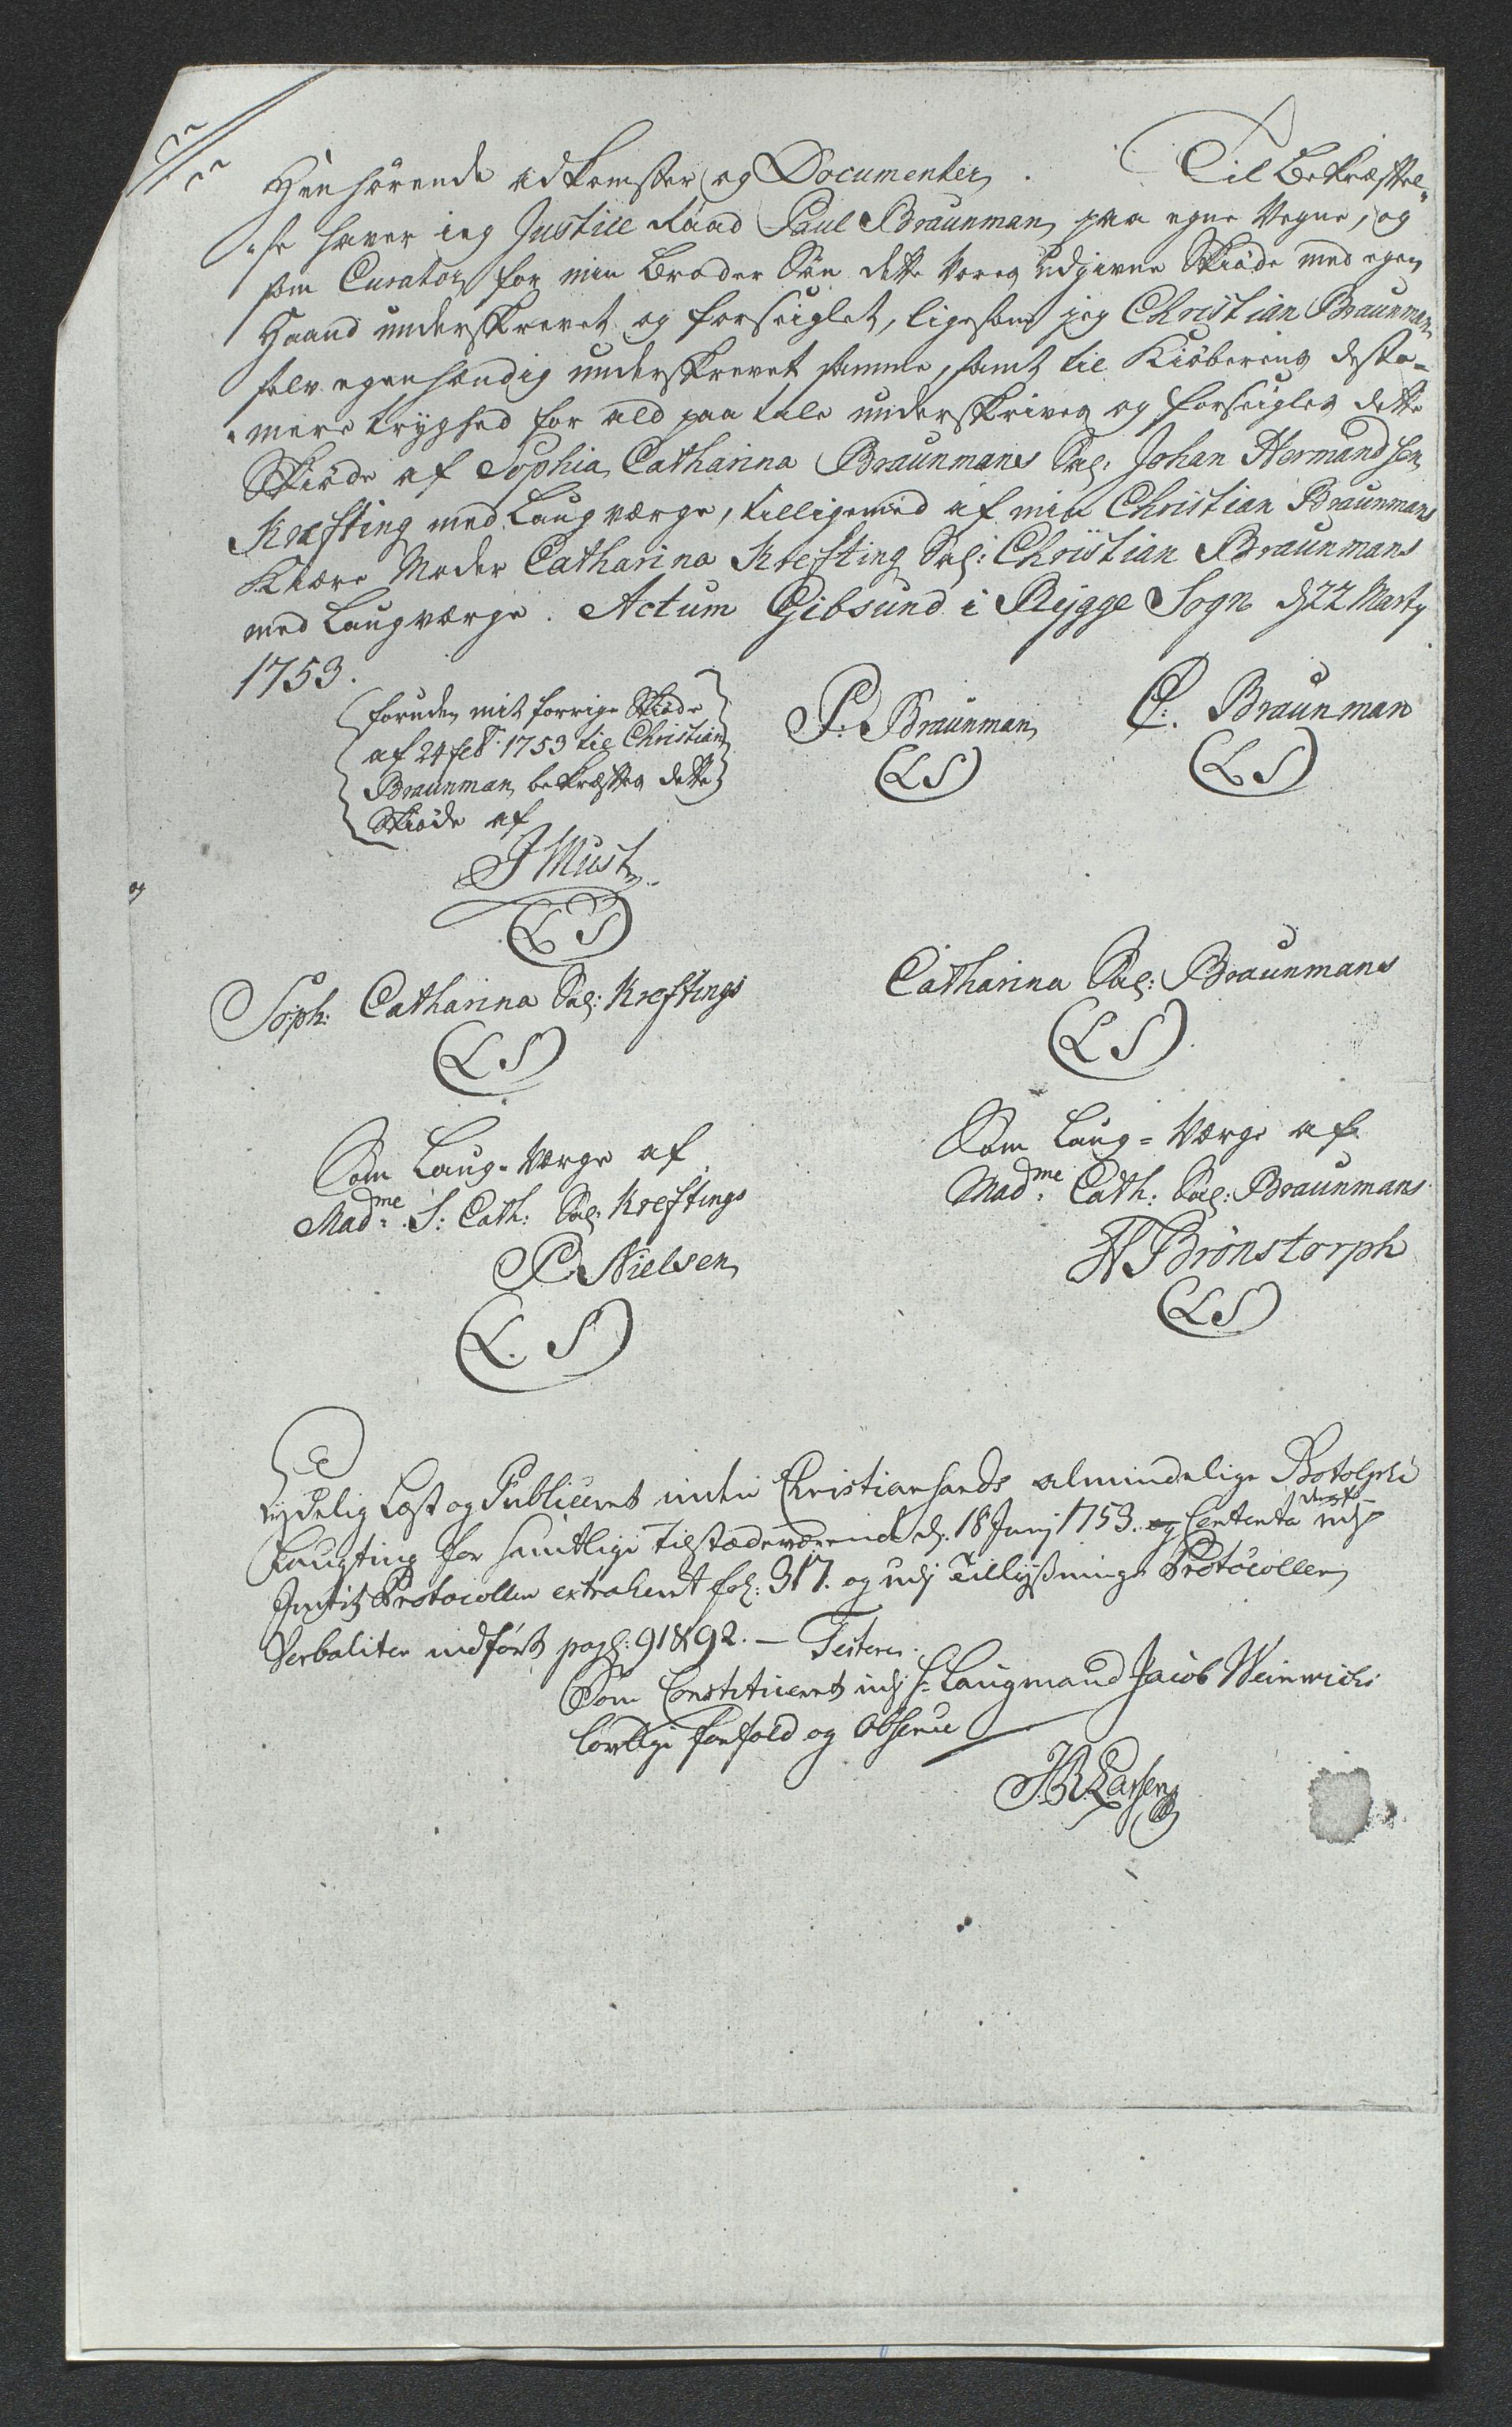 Hen hørende adkomster og Documenter. Til Bekræftel-
-se haver ieg Justice Raad Paul Braunman paa egne Vegne, og
som Curator for min Broder Søn dette Vores udgivne Skiøde med egen
Haand underskrevet og forseiglet, ligesom jeg Christian Braunman
selv egenhændig underskrevet samme, samt til Kiøberens desto-
-mere tryghed for ald paa tale underskrives og forseigles dette
Skiøde af Sophia Catharina Braunmans Sal: Johan Hermandsen
Krefting med Laugværge, tilligemed af min Christian Braunmans
Kiære Moder Catharina Krefting Sal: Christian Braunmans
med Laugværge. Actum Gibsund i Rygge Sogn d 22 Marty
1753.
foruden mit forrige Skiøde
af 24 feb: 1753 til Christian
Braunman, bekræftes dette
Skiøde af
J Must
(L S)
P: Braunman
(L S)
C: Braunman
(L S)
Soph: Catharina Sal: Kreftings
(L S)
Catharina Sal: Braunmans
(L S)
Som Laug-Værge af
Madme: S: Cath: Sal: Kreftings
P Nielsen
(L. S)
Som Laug-Værge af
Madme: Cath: Sal: Braunmans
H Brønstorph
(L S)
Lydelig Læst og Publiceret inden Christiansands almindelige Botolphi
Laugting for samtlige Tilstædeværende d. 18 Junj 1753. og Contenta deraf udj
Justitz Protocollen extraheret fol: 317. og udj Tillysnings Protocollen
Verbaliter indført pag: 91 & 92. — Testerer.
Som Constitueret udj Hr Laugmand Jacob Weinwichs
lovlige forfald og absence
J.B. Larsen